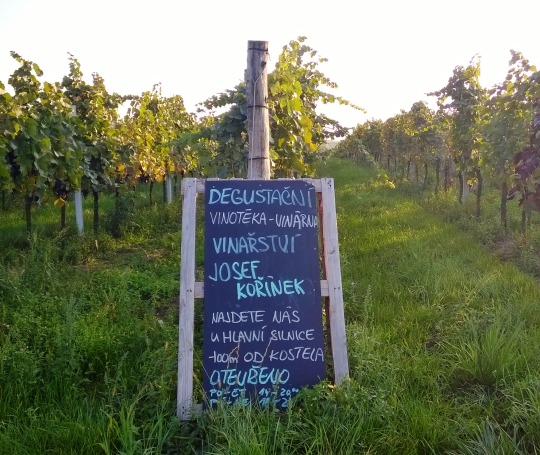 DEGUSTAČNÍ
VINOTÉKA-VINÁRNA
VINAŘSTVÍ
JOSEF
KOŘÍNEK
NAJDETE NÁS
U HLAVNÍ SILNICE
-100m OD KOSTELA
OTEVŘENO